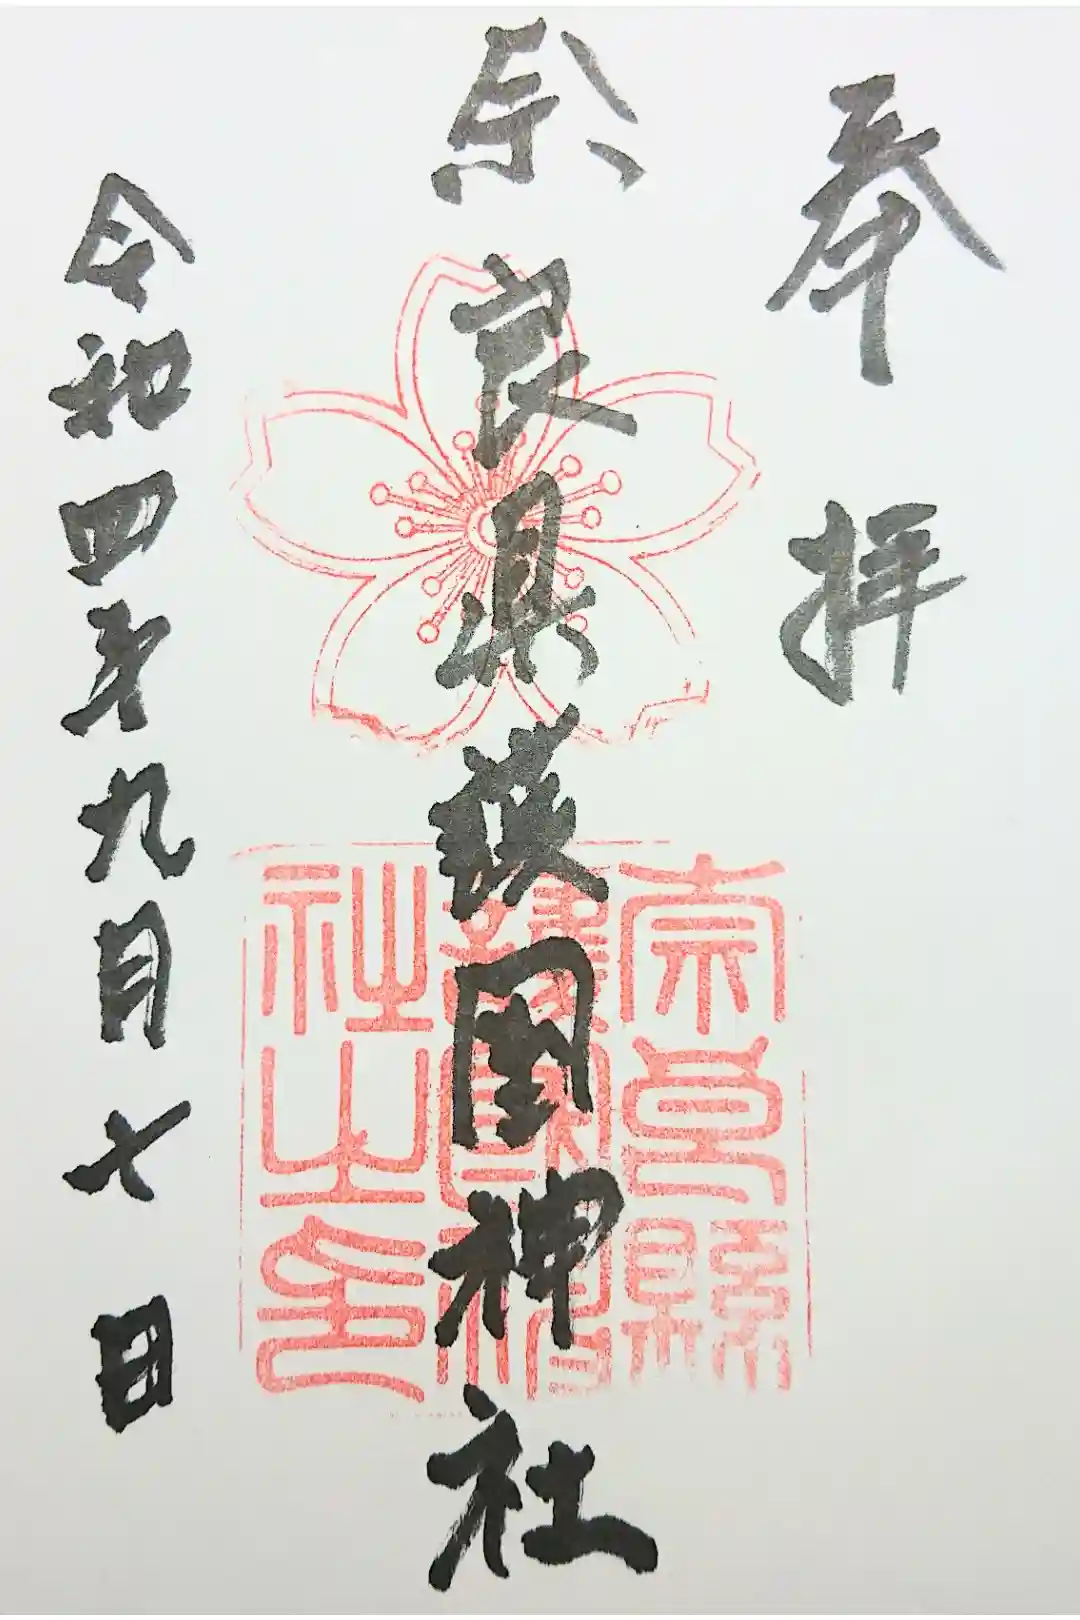 奉拝
奈良県護国神社
奈良縣
護國神
社之印
令和四年九月七日